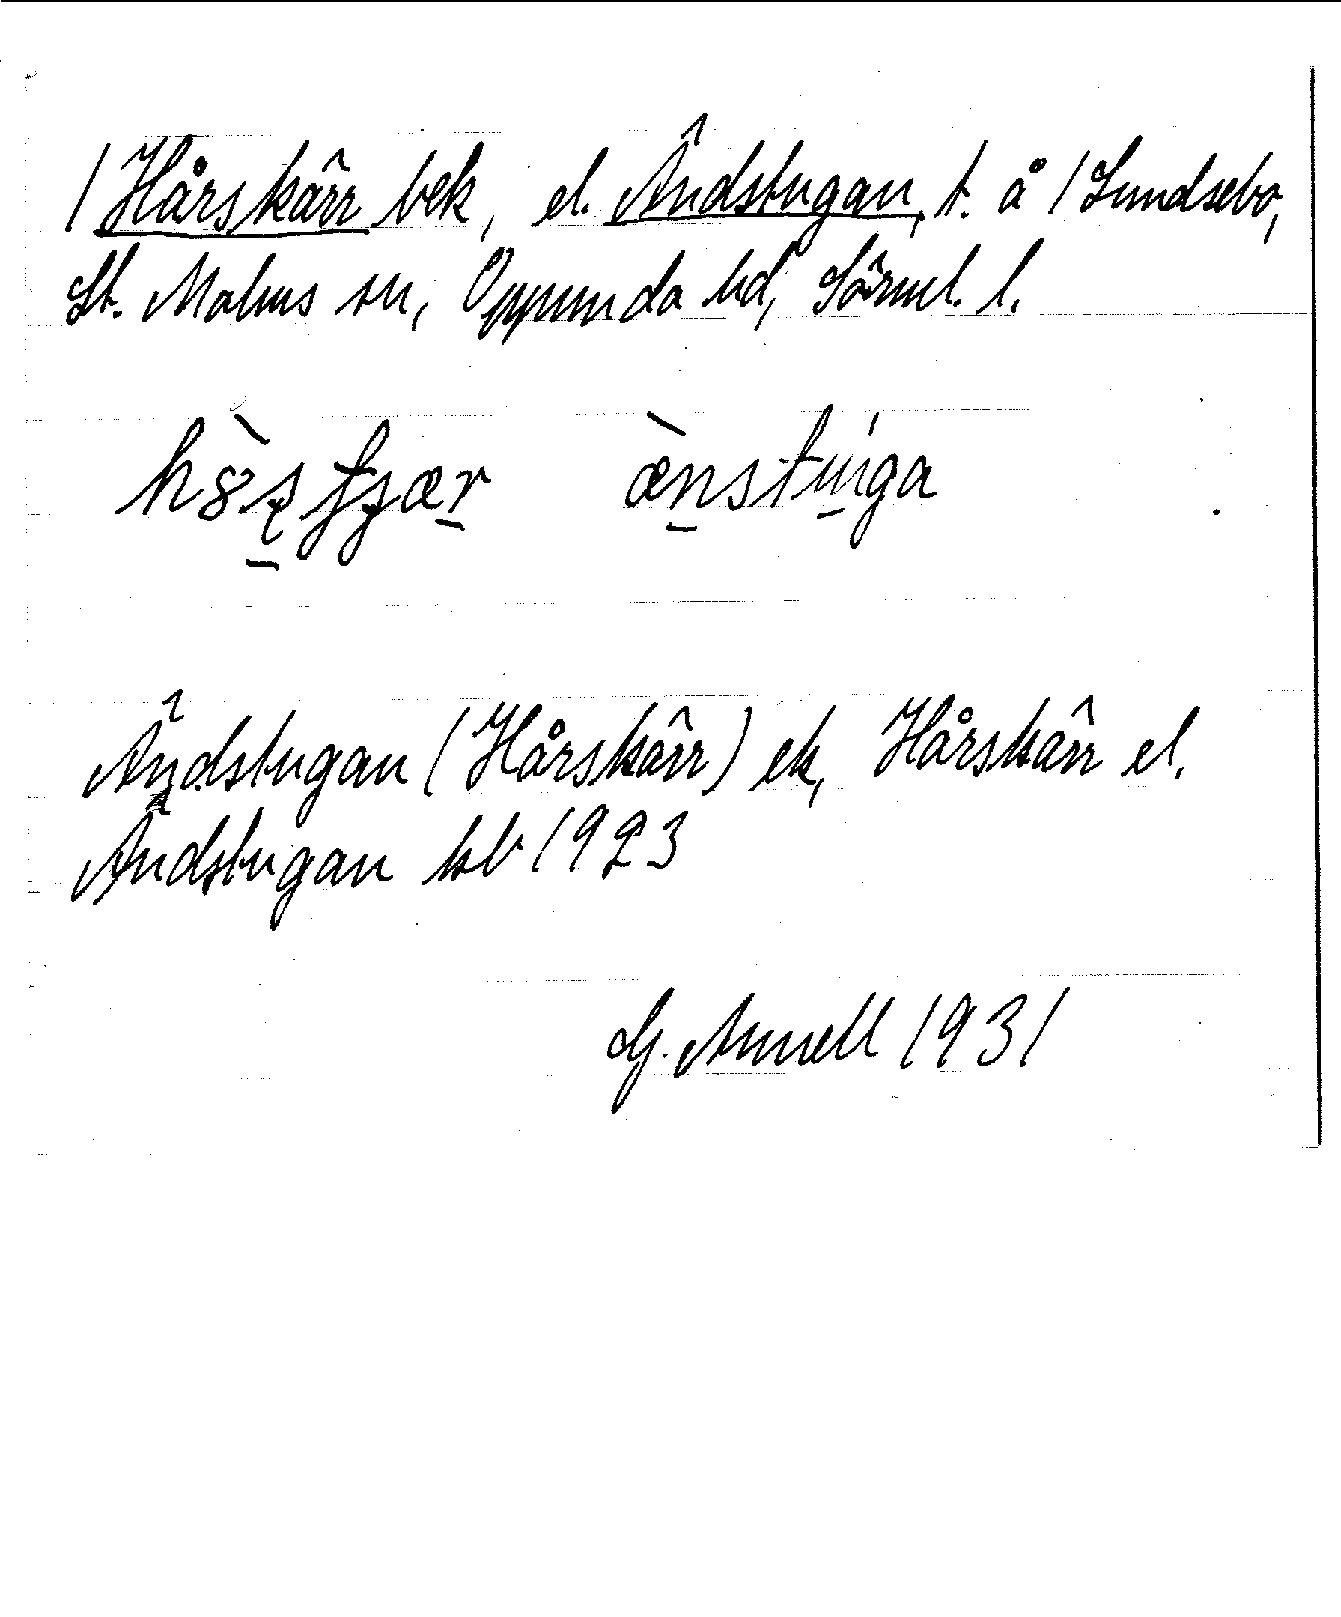 / Hårskärr bek, el. Ändstugan, t. å / Lundsebo,
St. Malms sn, Oppunda hd, Sörml. l.
ænstuga
Ändstugan (Hårskärr) ek, Hårskärr el.
Ändstugan kb 1923
G. Annell 1931